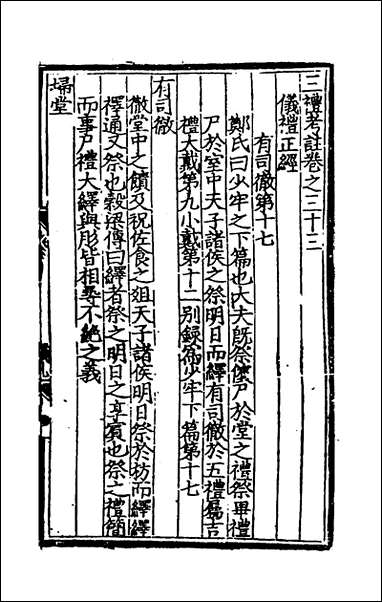 三禮考註卷之三十三
儀禮正經
有司徹第十七
鄭氏曰少牢之下篇也大夫旣祭儐尸於堂之禮祭畢禮
尸於室中天子諸侯之祭明日而繹有司徹於五禮屬吉
禮大戴第九小戴第十二别録爲少牢下篇第十七
有司徹
徹室中之饋及祝佐食之俎天子諸侯明日祭於祊而繹繹
禪通又祭也穀梁傳曰繹者祭之明日之享賔也祭之禮簡
而事尸禮大繹與肜皆相尋不絶之義
埽堂